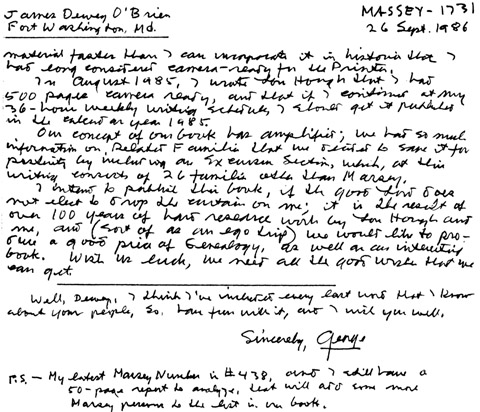 James Dewey O'Brien
Fort Washington, Md.
MASSEY - 1731
26 Sept. 1986
material faster than I can incorporate it in histories that I
had long considered camera-ready for the Printer.
In August 1985, I wrote Lou Hough that I had
500 pages camera ready, and that if I continued at my
36-hour weekly writing schedule, I should get it published
in the calendar year 1985.
Our concept of our book has amplified; we had so much
information on Related Families that we decided to save it for
posterity by including an Excursus Section, which, at this
writing consists of 26 families other than Massey.
I intend to publish this book, if the good Lord does
not elect to drop the curtain on me; it is the result of
over 100 years of hard research work by Lou Hough and
me, and (sort of as an ego trip) we would like to pro-
duce a good piece of Genealogy, as well as an interesting
book. Wish us luck, we need all the good wishes that we
can get.
Well, Dewey, I think I've included every last word that I know
about your people, so, have fun with it, and I wish you well.
Sincerely, George
P.S. — My latest Massey Number is # 438, and I still have a
50-page report to analyze, that will add some more
Massey persons to the list in our book.